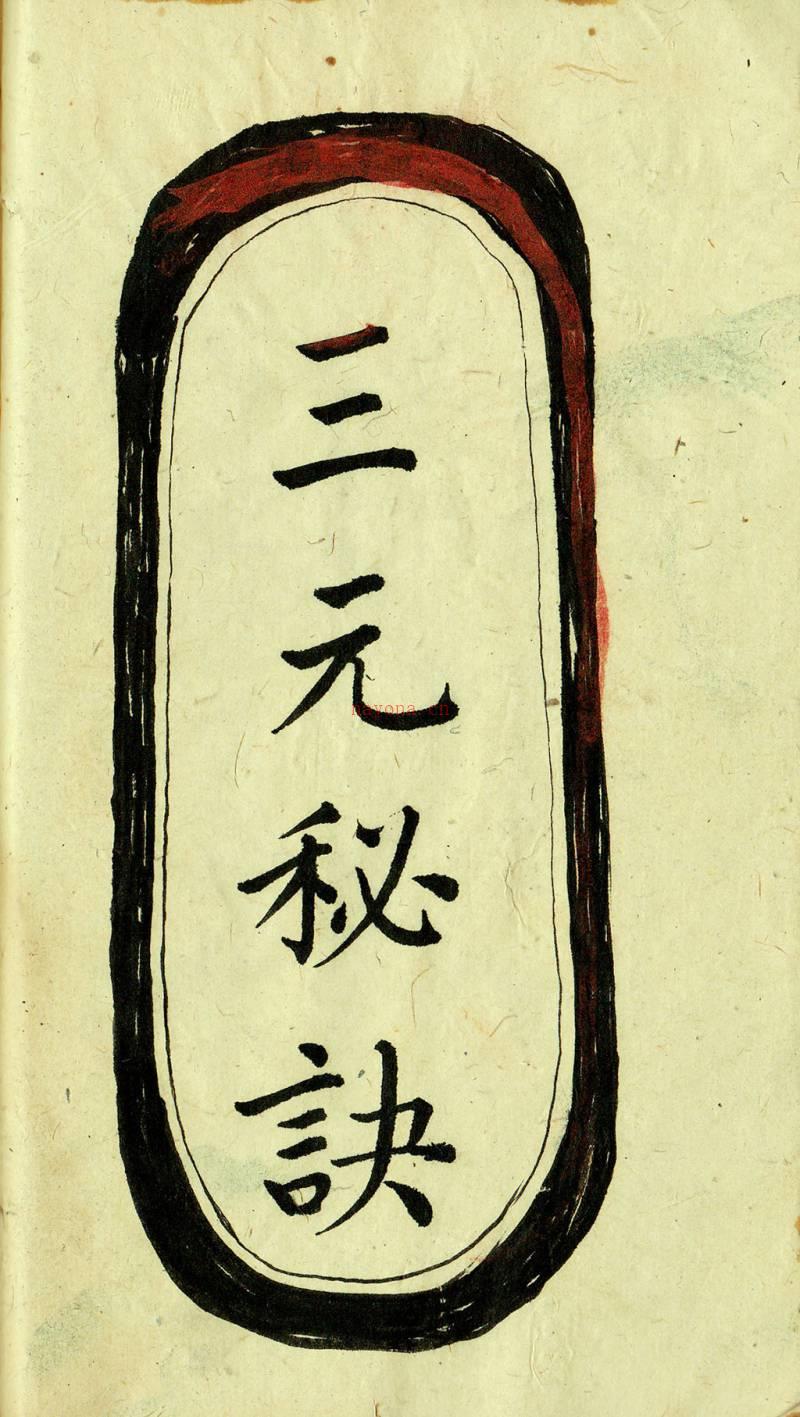 三元秘訣
nayona.cn